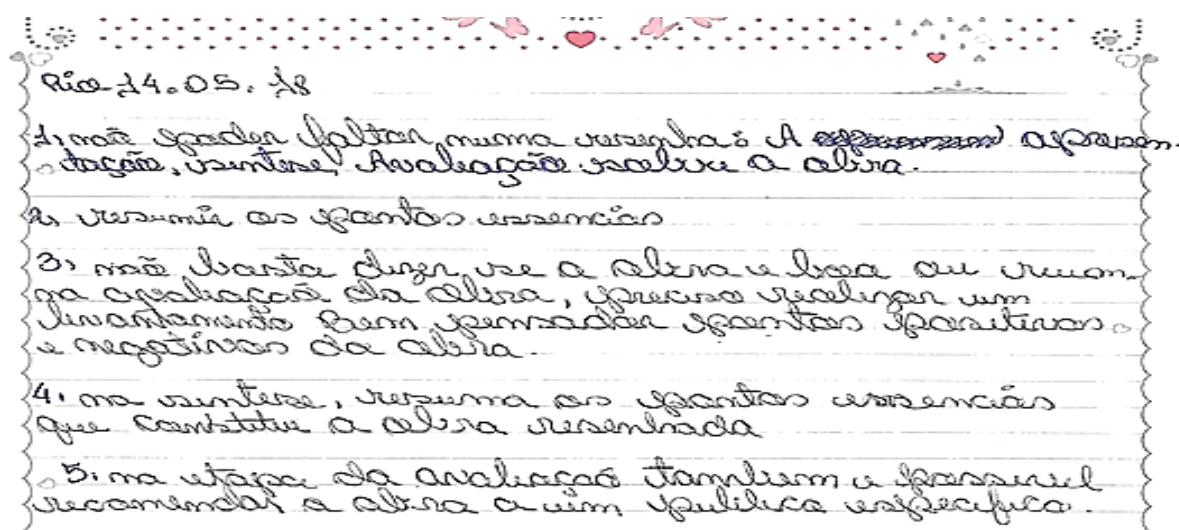 Rio 14.05.18
1, não poder faltar numa resenha: A apresen-
tação, sintese, Avaliação sobre a obra.
2, resumir os pontos essencias
3, não basta dizer se a obra e boa ou ruim.
na avaliação da obra, preciso realizar um
levantamento Bem pensador pontos positivos
e negativos da obra.
4. na sintese, resuma os pontos essencias
que constitue a obra resenhada
5. na etapa da avaliação tambem e possivel
recomendar a obra a um publico especifico.